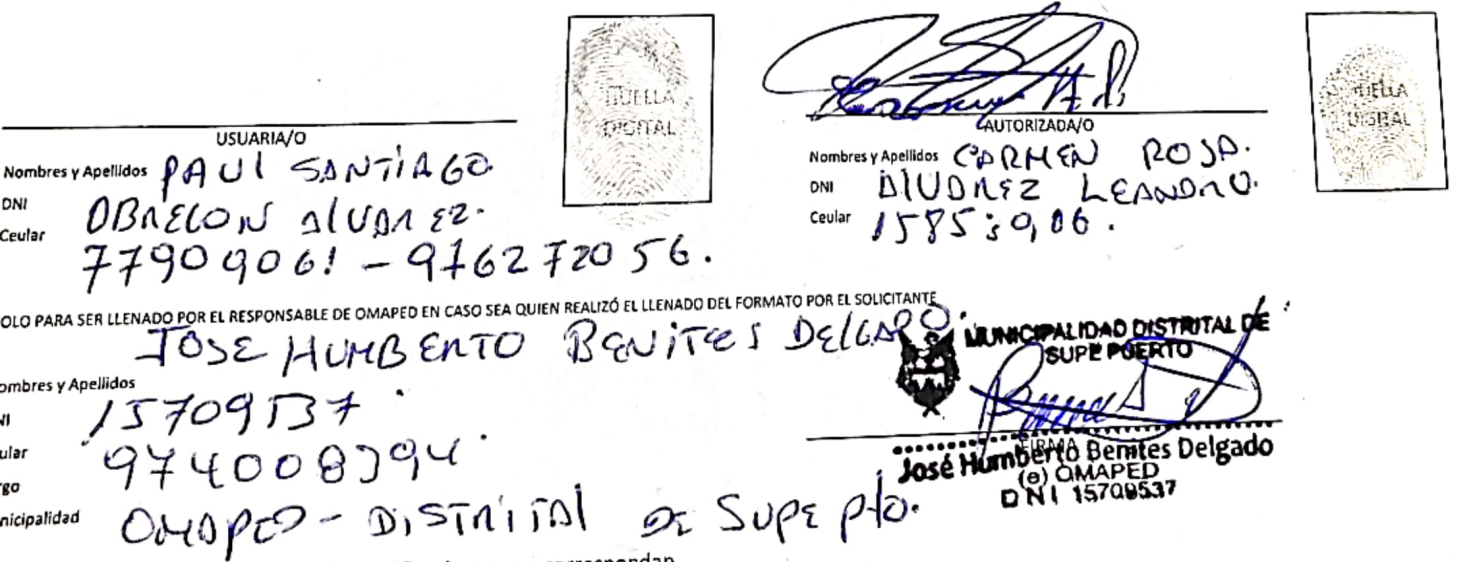 HUELLA
DIGITAL
HUELLA
DIGITAL
USUARIA/O
Nombres y Apellidos PAUl SANTiAGO.
DNI OBREGON AlVAREZ.
Ceular 77909061 - 976272056.
AUTORIZADA/O
Nombres y Apellidos CARMEN ROSA.
DNI AlVAREZ LEANDRO.
Ceular
OLO PARA SER LLENADO POR EL RESPONSABLE DE OMAPED EN CASO SEA QUIEN REALIZÓ EL LLENADO DEL FORMATO POR EL SOLICITANTE
JOSE HUMBERTO BENiTES DElGADO.
ombres y Apellidos
NI 15709537
ular 974008394
rgo
nicipalidad OMAPED - DiSTRiTAl DE SUPE Pto.
MUNICIPALIDAD DISTRITAL DE
SUPE PUERTO
FIRMA
José Humberto Benites Delgado
(e) OMAPED
DNI 15709537
correspondan